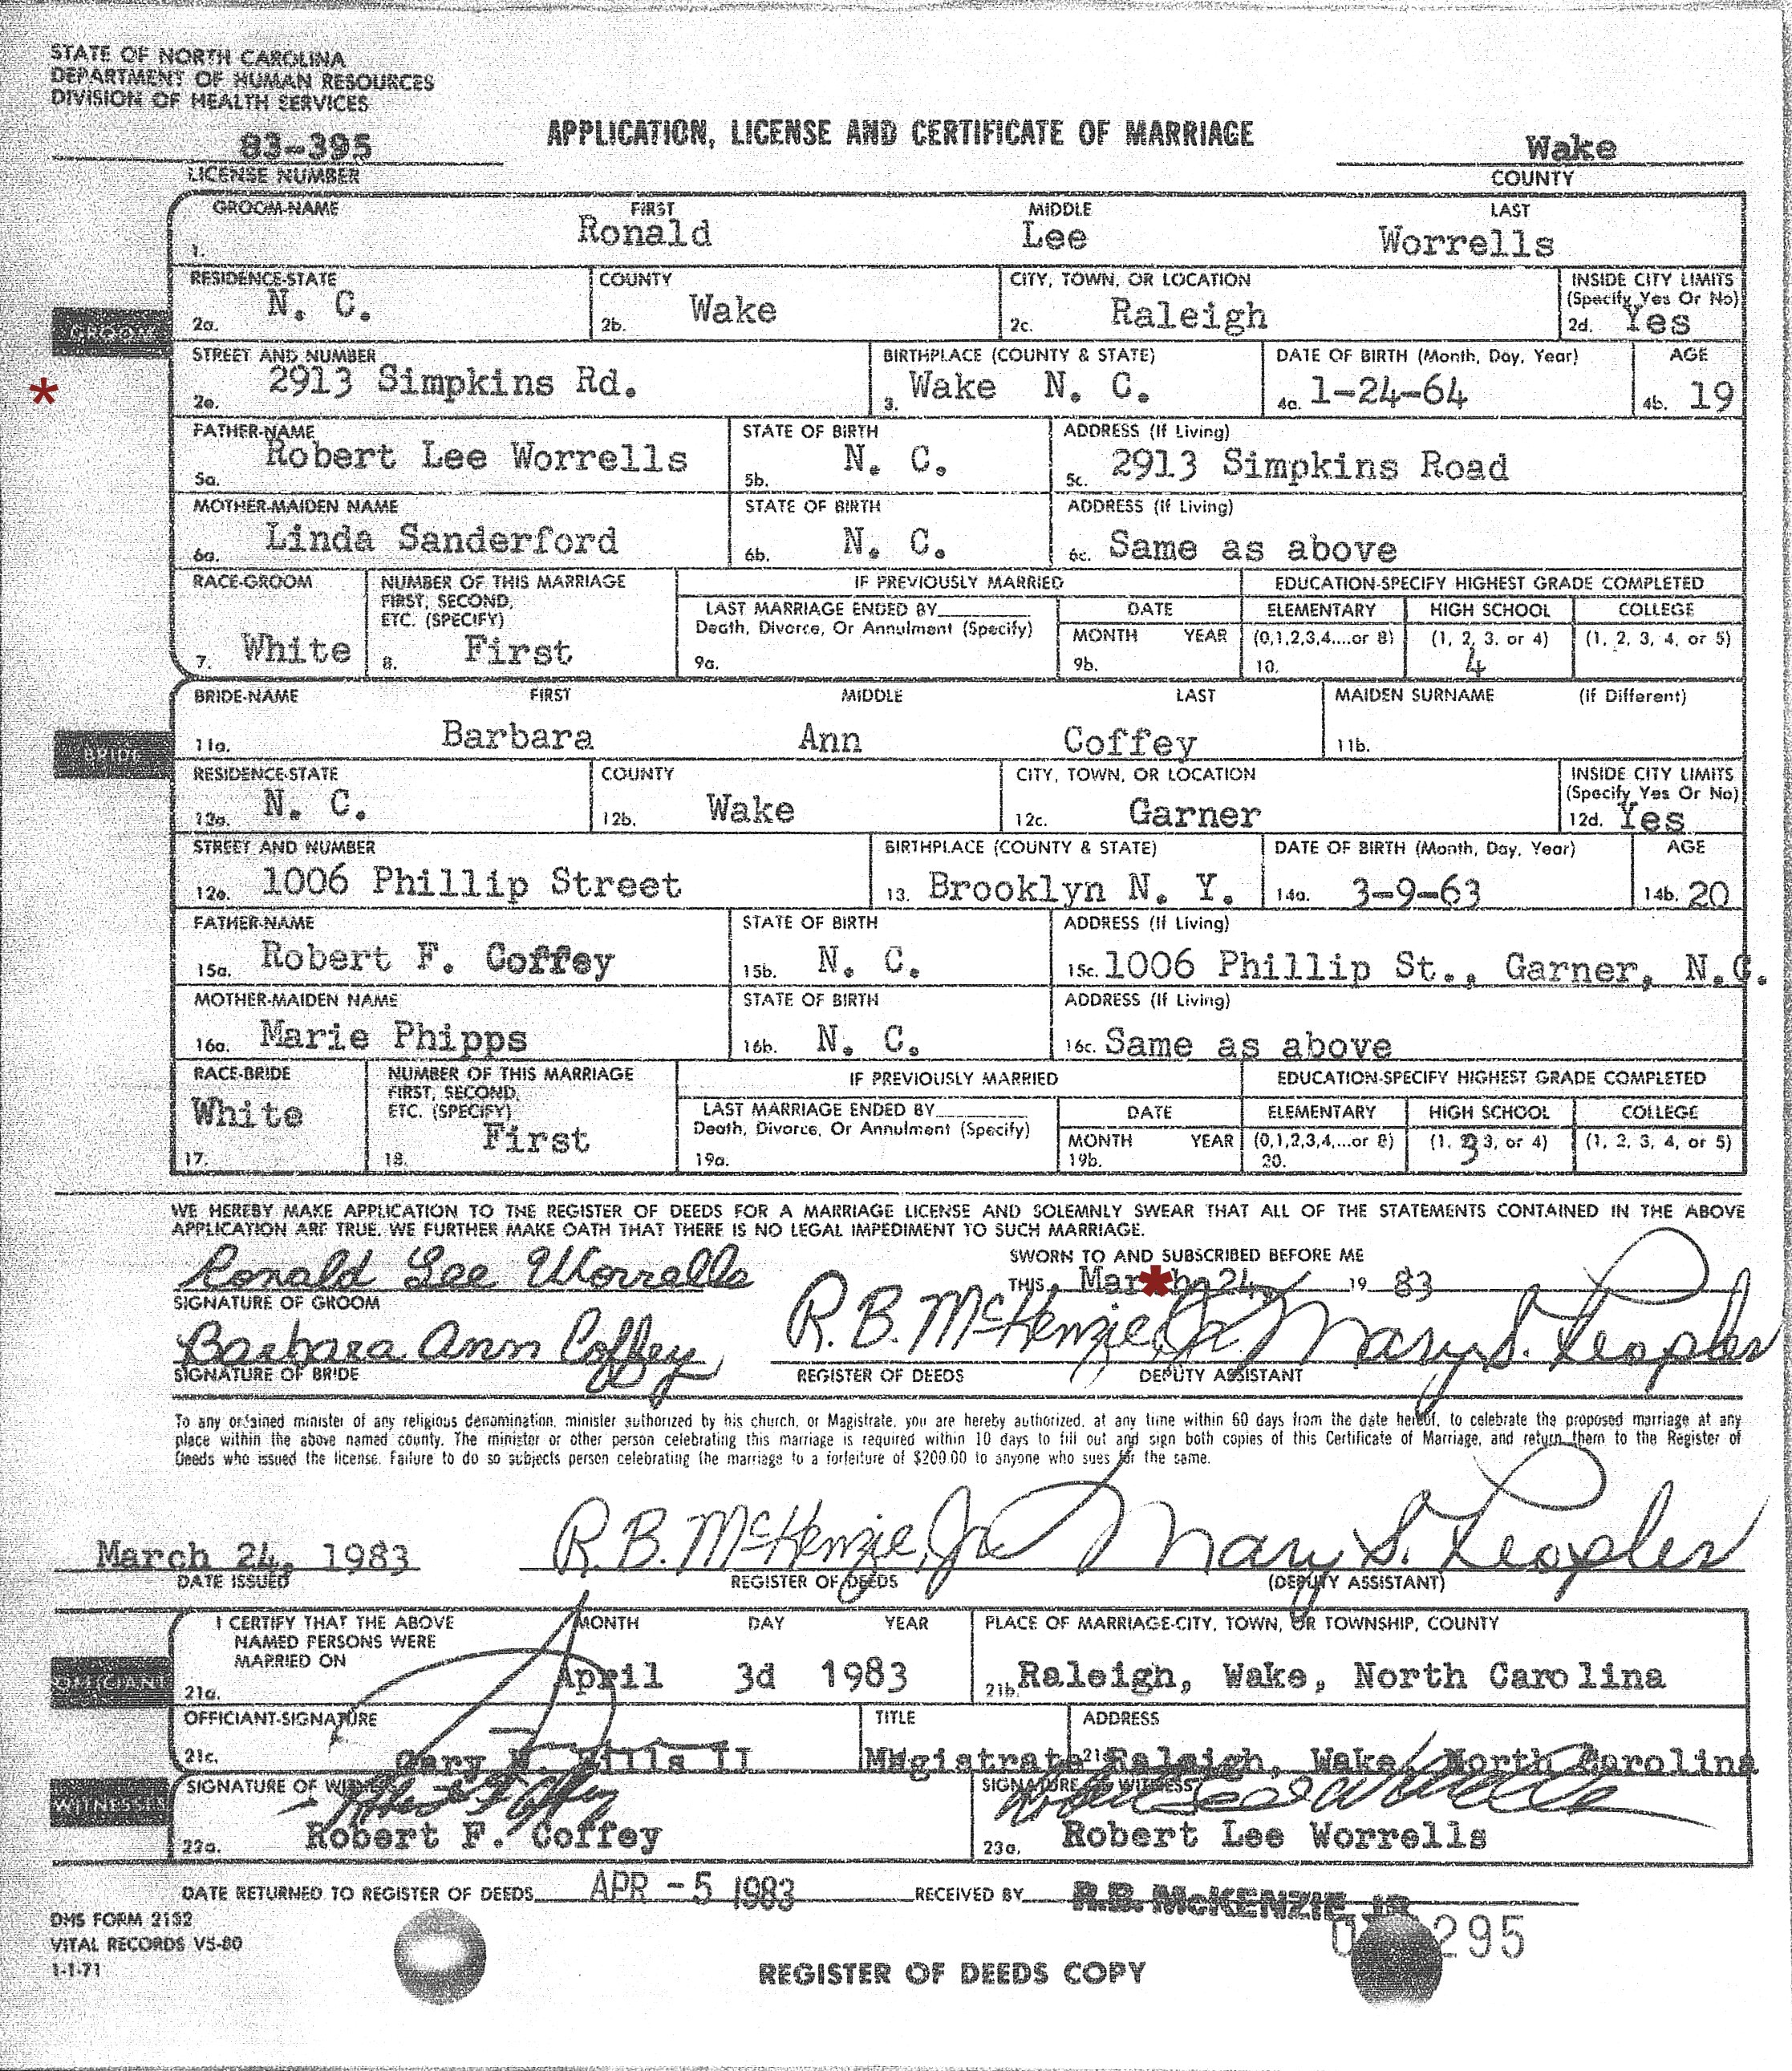 STATE OF NORTH CAROLINA
DEPARTMENT OF HUMAN RESOURCES
DIVISION OF HEALTH SERVICES
83-395
LICENSE NUMBER
APPLICATION, LICENSE AND CERTIFICATE OF MARRIAGE
Wake
COUNTY
GROOM
GROOM-NAME FIRST MIDDLE LAST
1. Ronald Lee Worrells
RESIDENCE-STATE COUNTY CITY, TOWN, OR LOCATION INSIDE CITY LIMITS
(Specify Yes Or No)
2a. N. C. 2b. Wake 2c. Raleigh 2d. Yes
STREET AND NUMBER BIRTHPLACE (COUNTY & STATE) DATE OF BIRTH (Month, Day, Year) AGE
* 2e. 2913 Simpkins Rd. 3. Wake N. C. 4a. 1-24-64 4b. 19
FATHER-NAME STATE OF BIRTH ADDRESS (If Living)
5a. Robert Lee Worrells 5b. N. C. 5c. 2913 Simpkins Road
MOTHER-MAIDEN NAME STATE OF BIRTH ADDRESS (If Living)
6a. Linda Sanderford 6b. N. C. 6c. Same as above
RACE-GROOM NUMBER OF THIS MARRIAGE IF PREVIOUSLY MARRIED EDUCATION-SPECIFY HIGHEST GRADE COMPLETED
FIRST, SECOND, LAST MARRIAGE ENDED BY DATE ELEMENTARY HIGH SCHOOL COLLEGE
ETC. (SPECIFY) Death, Divorce, Or Annulment (Specify) MONTH YEAR (0,1,2,3,4....or 8) (1, 2, 3, or 4) (1, 2, 3, 4, or 5)
7. White 8. First 9a. 9b. 10. 4
BRIDE
BRIDE-NAME FIRST MIDDLE LAST MAIDEN SURNAME (If Different)
11a. Barbara Ann Coffey 11b.
RESIDENCE-STATE COUNTY CITY, TOWN, OR LOCATION INSIDE CITY LIMITS
(Specify Yes Or No)
12a. N. C. 12b. Wake 12c. Garner 12d. Yes
STREET AND NUMBER BIRTHPLACE (COUNTY & STATE) DATE OF BIRTH (Month, Day, Year) AGE
12e. 1006 Phillip Street 13. Brooklyn N. Y. 14a. 3-9-63 14b. 20
FATHER-NAME STATE OF BIRTH ADDRESS (If Living)
15a. Robert F. Coffey 15b. N. C. 15c. 1006 Phillip St., Garner, N.C.
MOTHER-MAIDEN NAME STATE OF BIRTH ADDRESS (If Living)
16a. Marie Phipps 16b. N. C. 16c. Same as above
RACE-BRIDE NUMBER OF THIS MARRIAGE IF PREVIOUSLY MARRIED EDUCATION-SPECIFY HIGHEST GRADE COMPLETED
FIRST, SECOND, LAST MARRIAGE ENDED BY DATE ELEMENTARY HIGH SCHOOL COLLEGE
ETC. (SPECIFY) Death, Divorce, Or Annulment (Specify) MONTH YEAR (0,1,2,3,4,...or 8) (1, 2, 3, or 4) (1, 2, 3, 4, or 5)
17. White 18. First 19a. 19b. 20. 3
WE HEREBY MAKE APPLICATION TO THE REGISTER OF DEEDS FOR A MARRIAGE LICENSE AND SOLEMNLY SWEAR THAT ALL OF THE STATEMENTS CONTAINED IN THE ABOVE
APPLICATION ARE TRUE. WE FURTHER MAKE OATH THAT THERE IS NO LEGAL IMPEDIMENT TO SUCH MARRIAGE.
SWORN TO AND SUBSCRIBED BEFORE ME
Ronald Lee Worrells THIS March 24, 19 83
SIGNATURE OF GROOM
Barbara Ann Coffey R. B. McKenzie, Jr. Mary S. Peoples
SIGNATURE OF BRIDE REGISTER OF DEEDS DEPUTY ASSISTANT
To any ordained minister of any religious denomination, minister authorized by his church, or Magistrate, you are hereby authorized, at any time within 60 days from the date hereof, to celebrate the proposed marriage at any
place within the above named county. The minister or other person celebrating this marriage is required within 10 days to fill out and sign both copies of this Certificate of Marriage, and return them to the Register of
Deeds who issued the license. Failure to do so subjects person celebrating the marriage to a forfeiture of $200.00 to anyone who sues for the same.
March 24, 1983 R. B. McKenzie, Jr. Mary S. Peoples
DATE ISSUED REGISTER OF DEEDS (DEPUTY ASSISTANT)
OFFICIANT
I CERTIFY THAT THE ABOVE MONTH DAY YEAR PLACE OF MARRIAGE-CITY, TOWN, OR TOWNSHIP, COUNTY
NAMED PERSONS WERE
MARRIED ON
21a. April 3d 1983 21b. Raleigh, Wake, North Carolina
OFFICIANT-SIGNATURE TITLE ADDRESS
21c. Gary II Magistrate Raleigh, Wake, North Carolina
WITNESSES
SIGNATURE OF WITNESS SIGNATURE OF WITNESS
Robert F. Coffey Robert Lee Worrells
22a. Robert F. Coffey 23a. Robert Lee Worrells
DATE RETURNED TO REGISTER OF DEEDS APR -5 1983 RECEIVED BY R.B. McKENZIE JR
DHS FORM 2132
VITAL RECORDS VS-80
1-1-71
295
REGISTER OF DEEDS COPY